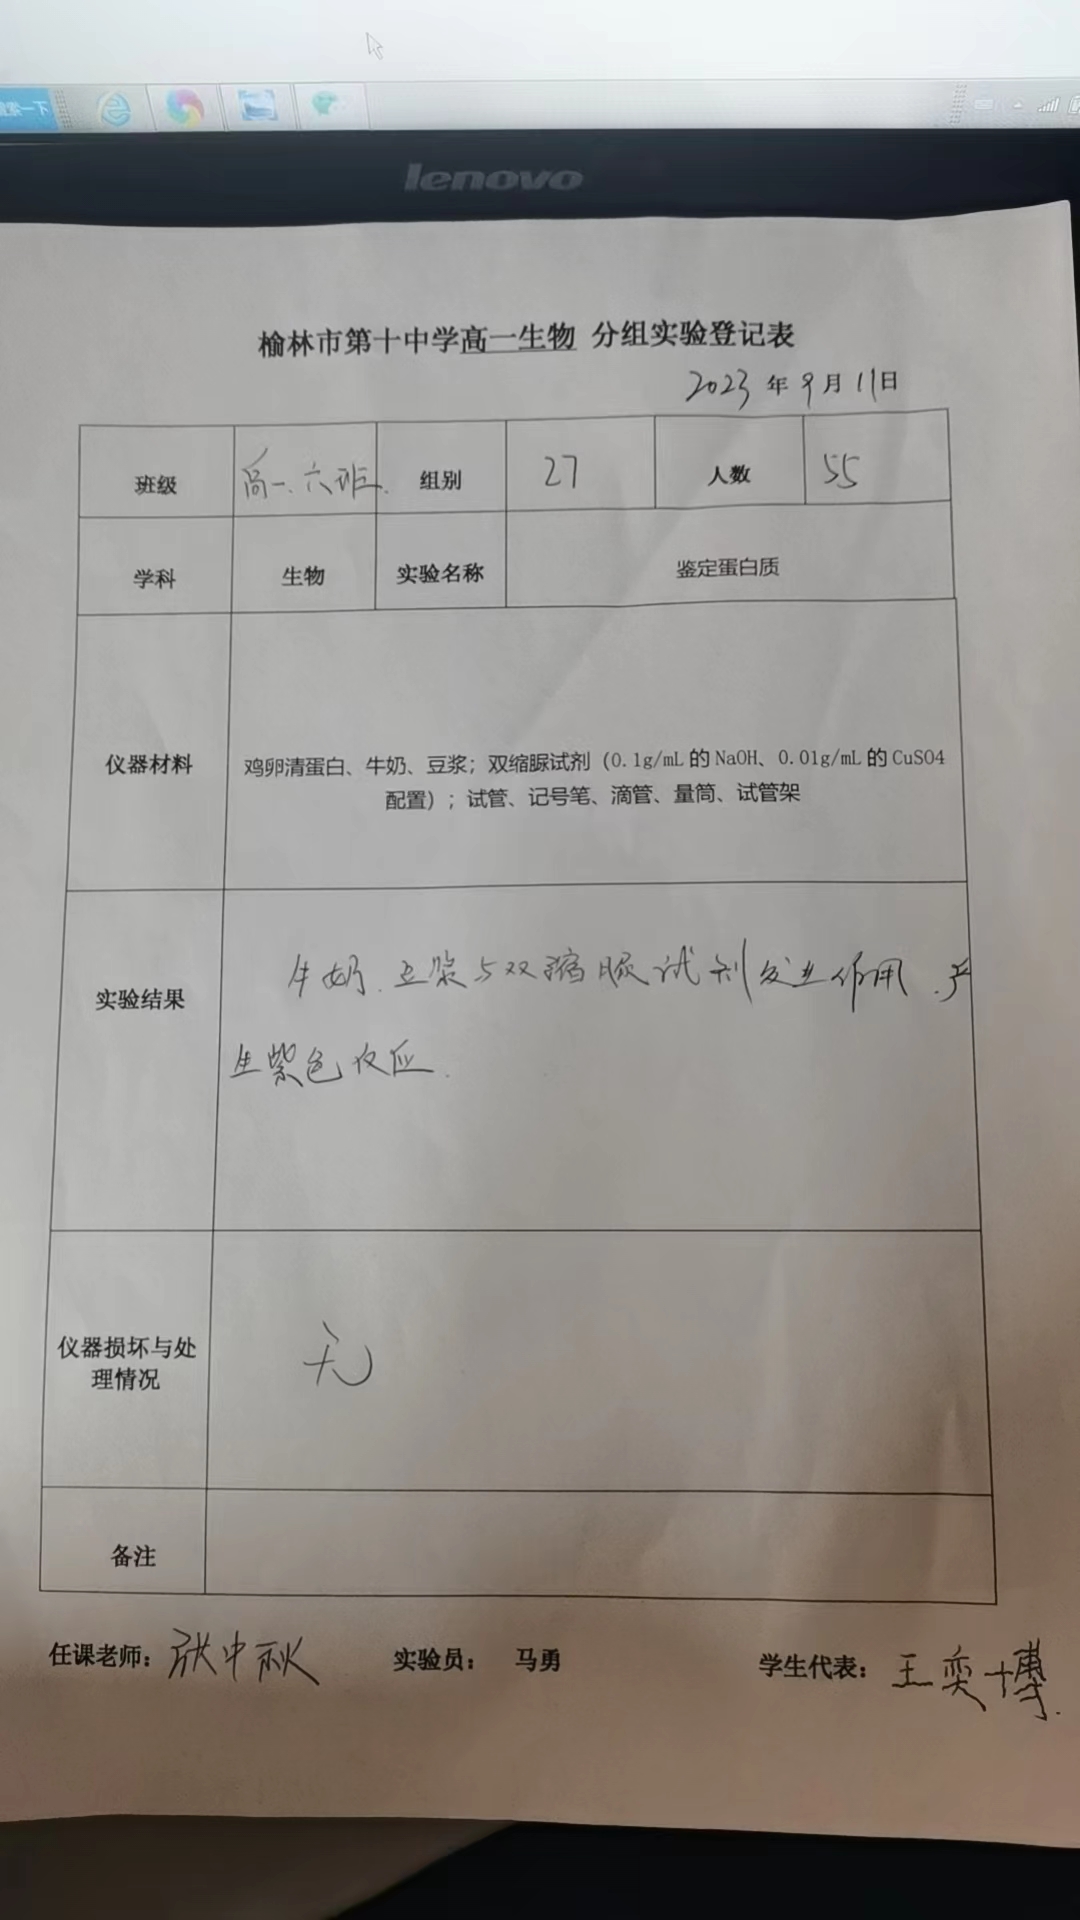 搜索一下
lenovo
榆林市第十中学高一生物 分组实验登记表
2023 年 9 月 11日
班级 高一、六班. 组别 27 人数 55
学科 生物 实验名称 鉴定蛋白质
仪器材料
鸡卵清蛋白、牛奶、豆浆；双缩脲试剂（0.1g/mL 的 NaOH、0.01g/mL 的 CuSO4
配置）；试管、记号笔、滴管、量筒、试管架
实验结果
牛奶.豆浆与双缩脲试剂发生作用.产
生紫色反应.
仪器损坏与处
理情况
无
备注
任课老师：张中秋 实验员： 马勇 学生代表：王奕博.